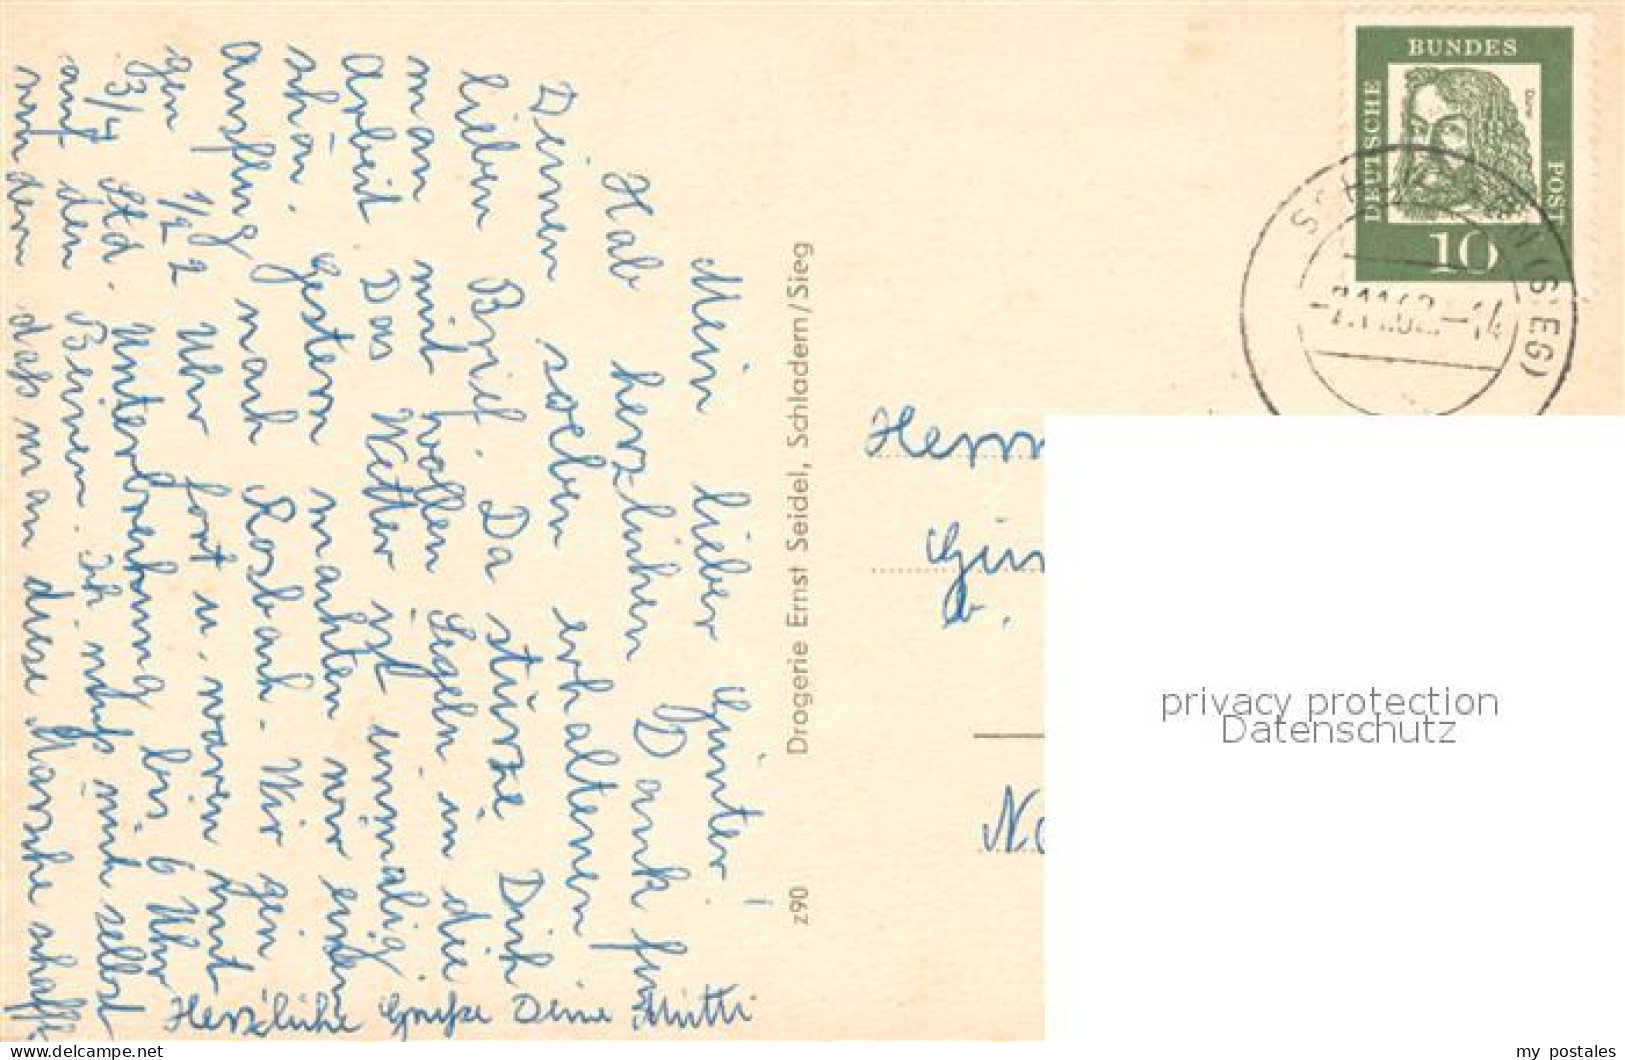 Mein lieber Günter!
Hab herzlichen Dank für
Deinen soeben erhaltenen
lieben Brief. Da stürze Dich
man mit vollen Segeln in die
Arbeit. Das Wetter ist unmalig
schön. Gestern machten wir einen
Ausflug nach Rosbach. Wir gin
gen 1/2 2 Uhr fort u. waren mit
3/4 Std. Unterbrechung bis 6 Uhr
auf den Beinen. Ich muß mich selbst
wundern daß man diese Märsche schafft
Herzliche Grüße Deine Mutti
z90 Drogerie Ernst Seidel, Schladern/Sieg
DEUTSCHE
BUNDES
POST
Dürer
10
(SIEG)
-14
Herrn
privacy protection
Datenschutz
www.delcampe.net
my_postales